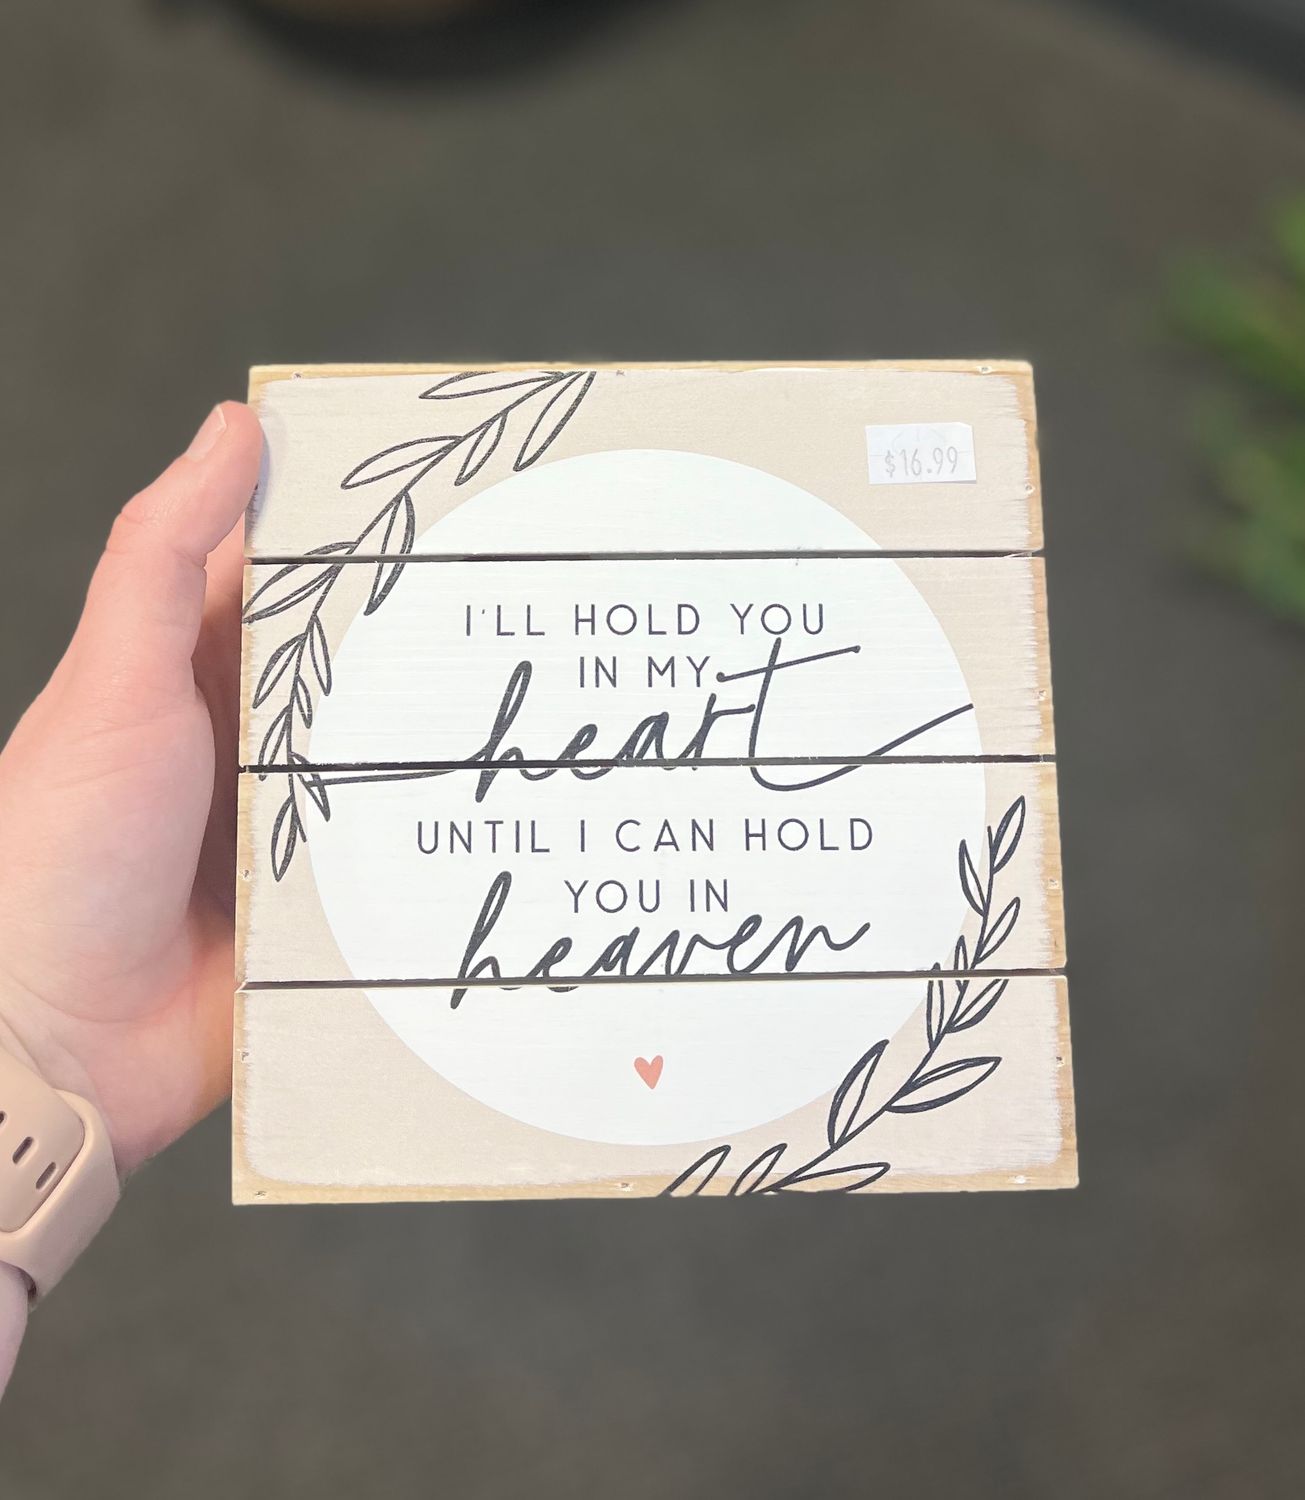 $16.99
I'LL HOLD YOU
IN MY
heart
UNTIL I CAN HOLD
YOU IN
heaven